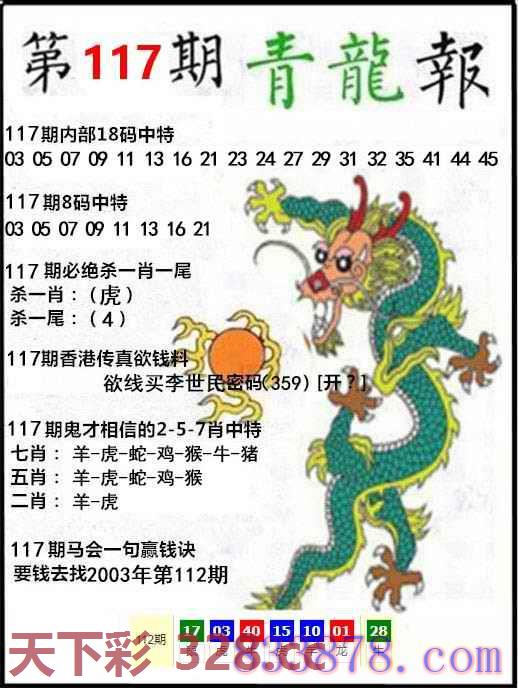 第117期青龍報
117期内部18码中特
03 05 07 09 11 13 16 21 23 24 27 29 31 32 35 41 44 45
117期8码中特
03 05 07 09 11 13 16 21
117期必绝杀一肖一尾
杀一肖：（虎）
杀一尾：（4）
117期香港传真欲钱料
欲线买李世民密码(359) [开？]
117期鬼才相信的2-5-7肖中特
七肖： 羊-虎-蛇-鸡-猴-牛-猪
五肖： 羊-虎-蛇-鸡-猴
二肖： 羊-虎
117期马会一句赢钱诀
要钱去找2003年第112期
112期 17 03 40 15 10 01 28
虎 龙 牛
天下彩 328.cc
2833878.com